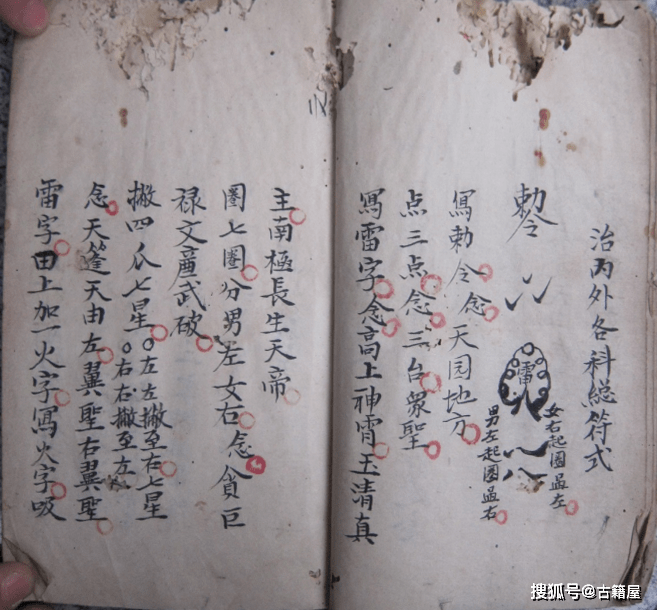 治内外各科総符式
勅令
雷
女右起圏左
男左起圏右
寫勅令念天园地方
点三点念三台衆聖
寫雷字念高上神霄玉清真
主南極長生天帝
圏七圏分男左女右念貪巨
禄文廉武破
撇四爪七星。左左撇至右七星
。右右撇至左
念天篷天由左翼聖右翼聖
雷字田上加一火字寫火字吸
搜狐号@古籍屋